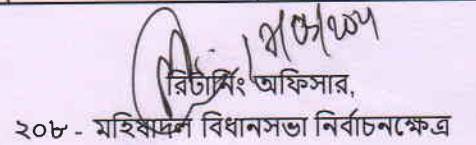 রিটার্নিং অফিসার,
২০৮ - মহিষাদল বিধানসভা নির্বাচনক্ষেত্র